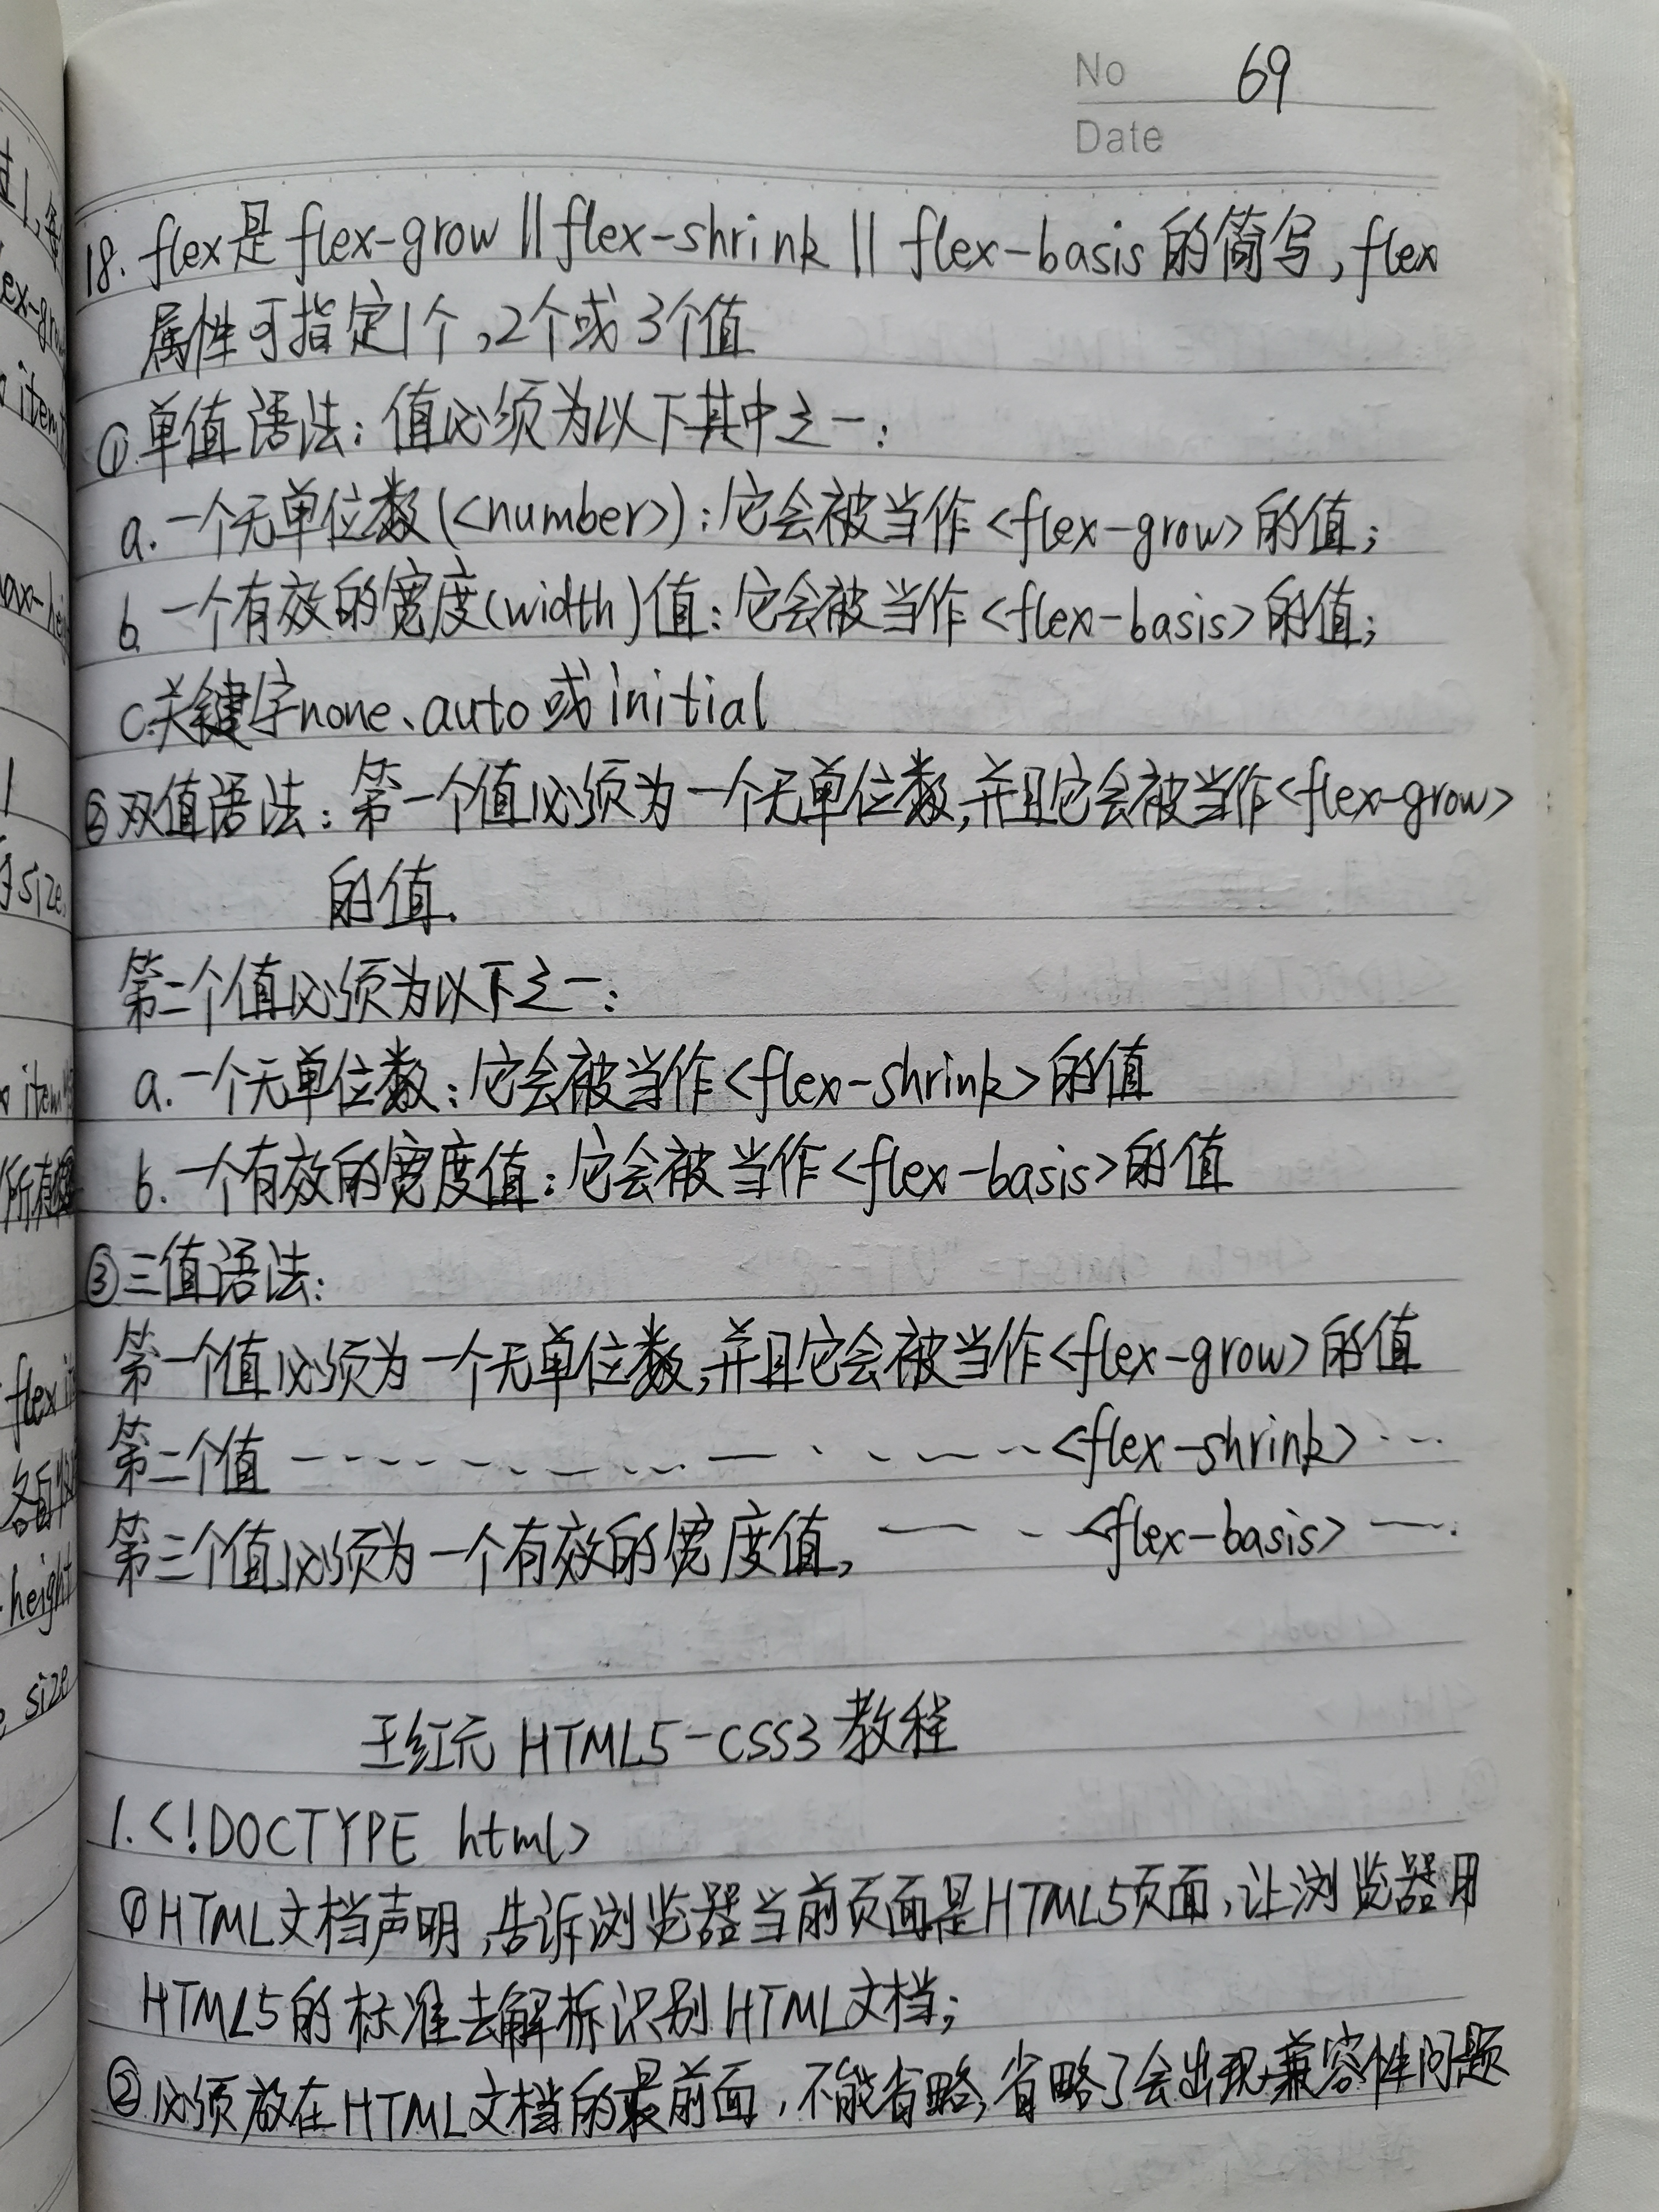 No 69
Date
18. flex是 flex-grow || flex-shrink || flex-basis 的简写, flex
属性可指定1个,2个或3个值
①单值语法: 值必须为以下其中之一:
a. 一个无单位数(<number>): 它会被当作<flex-grow>的值;
b. 一个有效的宽度(width)值: 它会被当作<flex-basis>的值;
c.关键字none、auto或initial
②双值语法: 第一个值必须为一个无单位数,并且它会被当作<flex-grow>
的值.
第二个值必须为以下之一:
a. 一个无单位数: 它会被当作<flex-shrink>的值
b. 一个有效的宽度值: 它会被当作<flex-basis>的值
③三值语法:
第一个值必须为一个无单位数,并且它会被当作<flex-grow>的值
第二个值 ---------------- <flex-shrink> ---
第三个值必须为一个有效的宽度值, ---- <flex-basis> ---
王红元 HTML5-CSS3 教程
1. <!DOCTYPE html>
①HTML文档声明,告诉浏览器当前页面是HTML5页面,让浏览器用
HTML5的标准去解析识别HTML文档;
②必须放在HTML文档的最前面,不能省略,省略了会出现兼容性问题